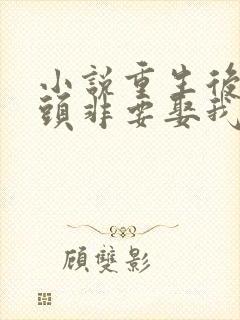 小說重生後
頭非要娶我
顧雙影